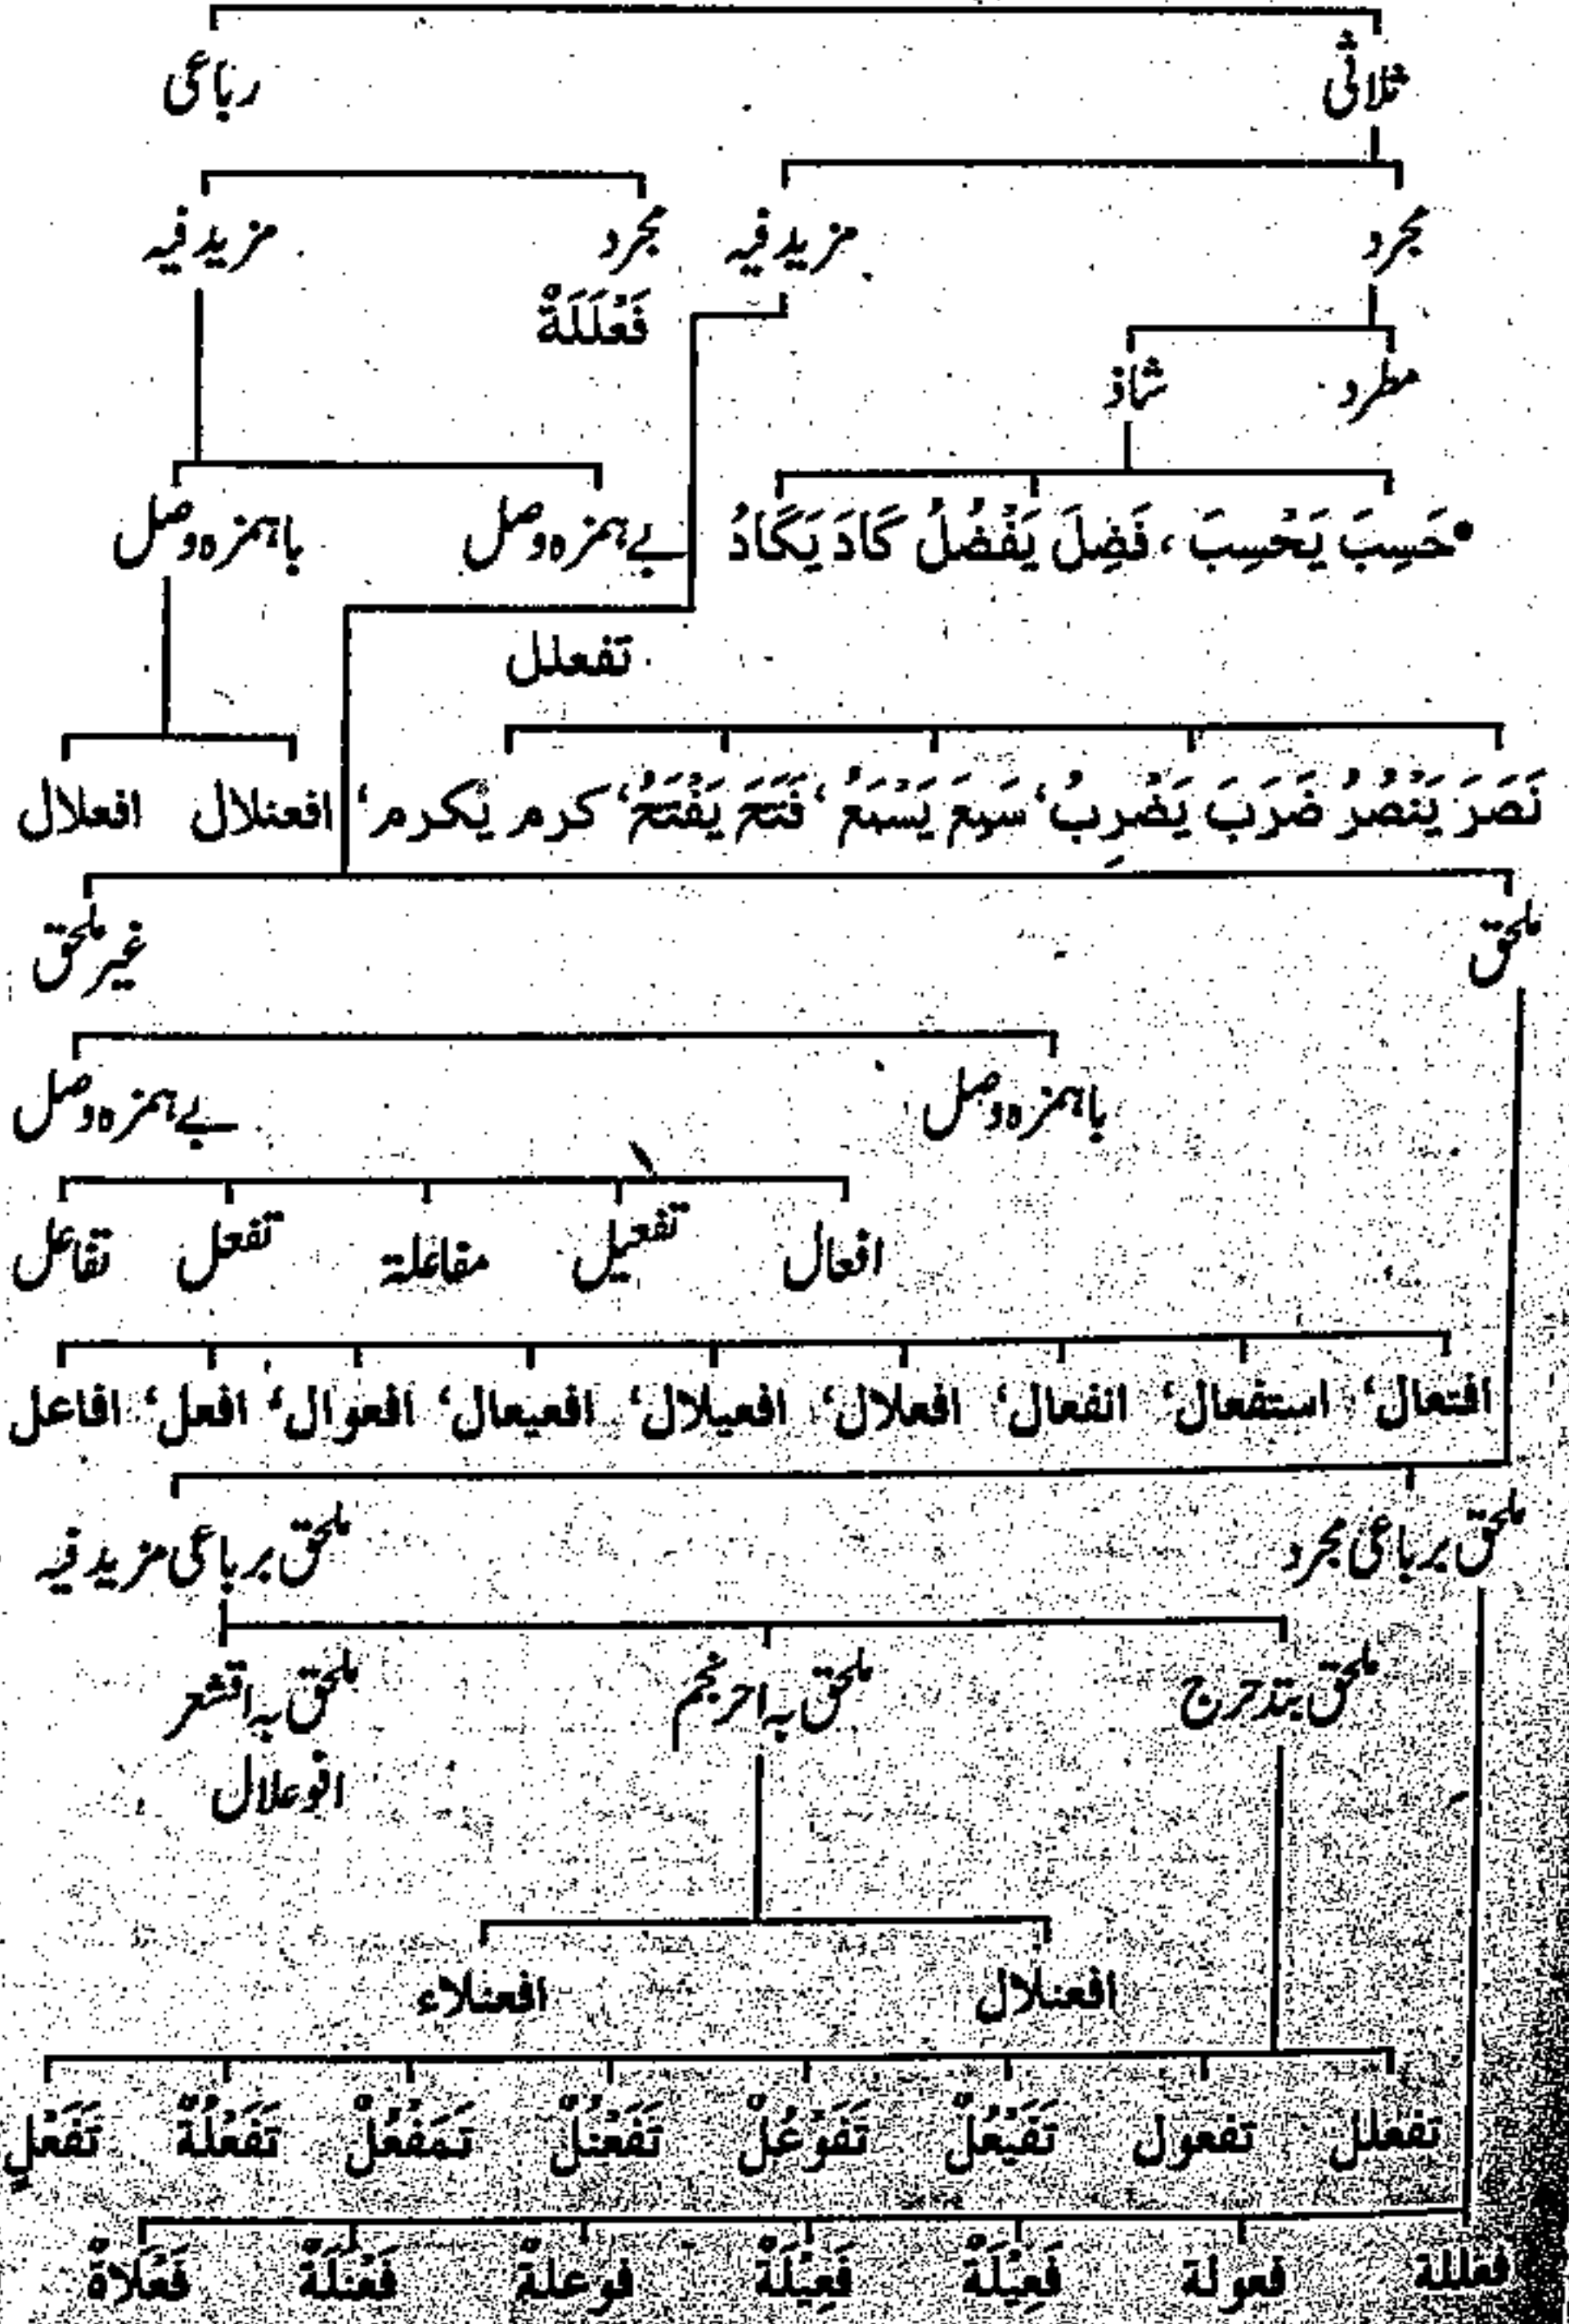 ثلاثی رباعی
مجرد مزید فیہ مجرد مزید فیہ
فَعْلَلَةٌ
مطرد شاذ
حَسِبَ يَحْسِبَ ، فَضِلَ يَفْضُلُ كَادَ يَكَادُ بے ہمزہ وصل باہمزہ وصل
تفعلل
نَصَرَ يَنْصُرُ ضَرَبَ يَضْرِبُ، سَمِعَ يَسْمَعُ، فَتَحَ يَفْتَحُ، كرم يكرم، افعنلال افعلال
ملحق غیر ملحق
باہمزہ وصل بے ہمزہ وصل
افعال تفعیل مفاعلة تفعل تفاعل
افتعال، استفعال، انفعال، افعلال، افعيلال، افعيعال، افعوال، افعل، افاعل
ملحق برباعی مجرد ملحق برباعی مزید فیہ
ملحق بتدحرج ملحق بہ احرنجم ملحق بہ اقشعر
افوعلال
افعنلال افعنلاء
تفعلل تفعول تَفَيْعُلْ تَفَوْعُلْ تَفَعْنُلْ تَمَفْعُلْ تَفَعْلُةْ تَفَعْلٍ
فعللة فعولة فَعِيْلَةْ فَعِيْلَةْ فوعلة فَعْنَلَةْ فَعْلَاةْ